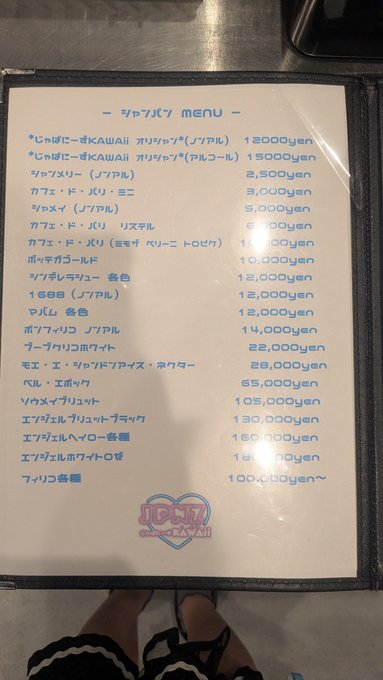 − シャンパン MENU −
*じゃぱにーずKAWAii オリシャン*(ノンアル) 12000yen
*じゃぱにーずKAWAii オリシャン*(アルコール) 15000yen
シャンメリー (ノンアル) 2,500yen
カフェ・ド・パリ・ミニ 3,000yen
シャメイ (ノンアル) 5,000yen
カフェ・ド・パリ リステル 6,000yen
カフェ・ド・パリ (ミモザ ベリーニ トロピク)
ボッテガゴールド 10,000yen
シンデレラシュー 各色 12,000yen
1688 (ノンアル) 12,000yen
マバム 各色 12,000yen
ボンフィリコ ノンアル 14,000yen
ブーブクリコホワイト 22,000yen
モエ・エ・シャンドンアイス・ネクター 28,000yen
ベル・エポック 65,000yen
ソウメイブリュット 105,000yen
エンジェルブリュットブラック 130,000yen
エンジェルヘイロー各種 160,000yen
エンジェルホワイトロゼ 180,000yen
フィリコ各種 100,000yen〜
JPNZ
じゃぱにーずKAWAii